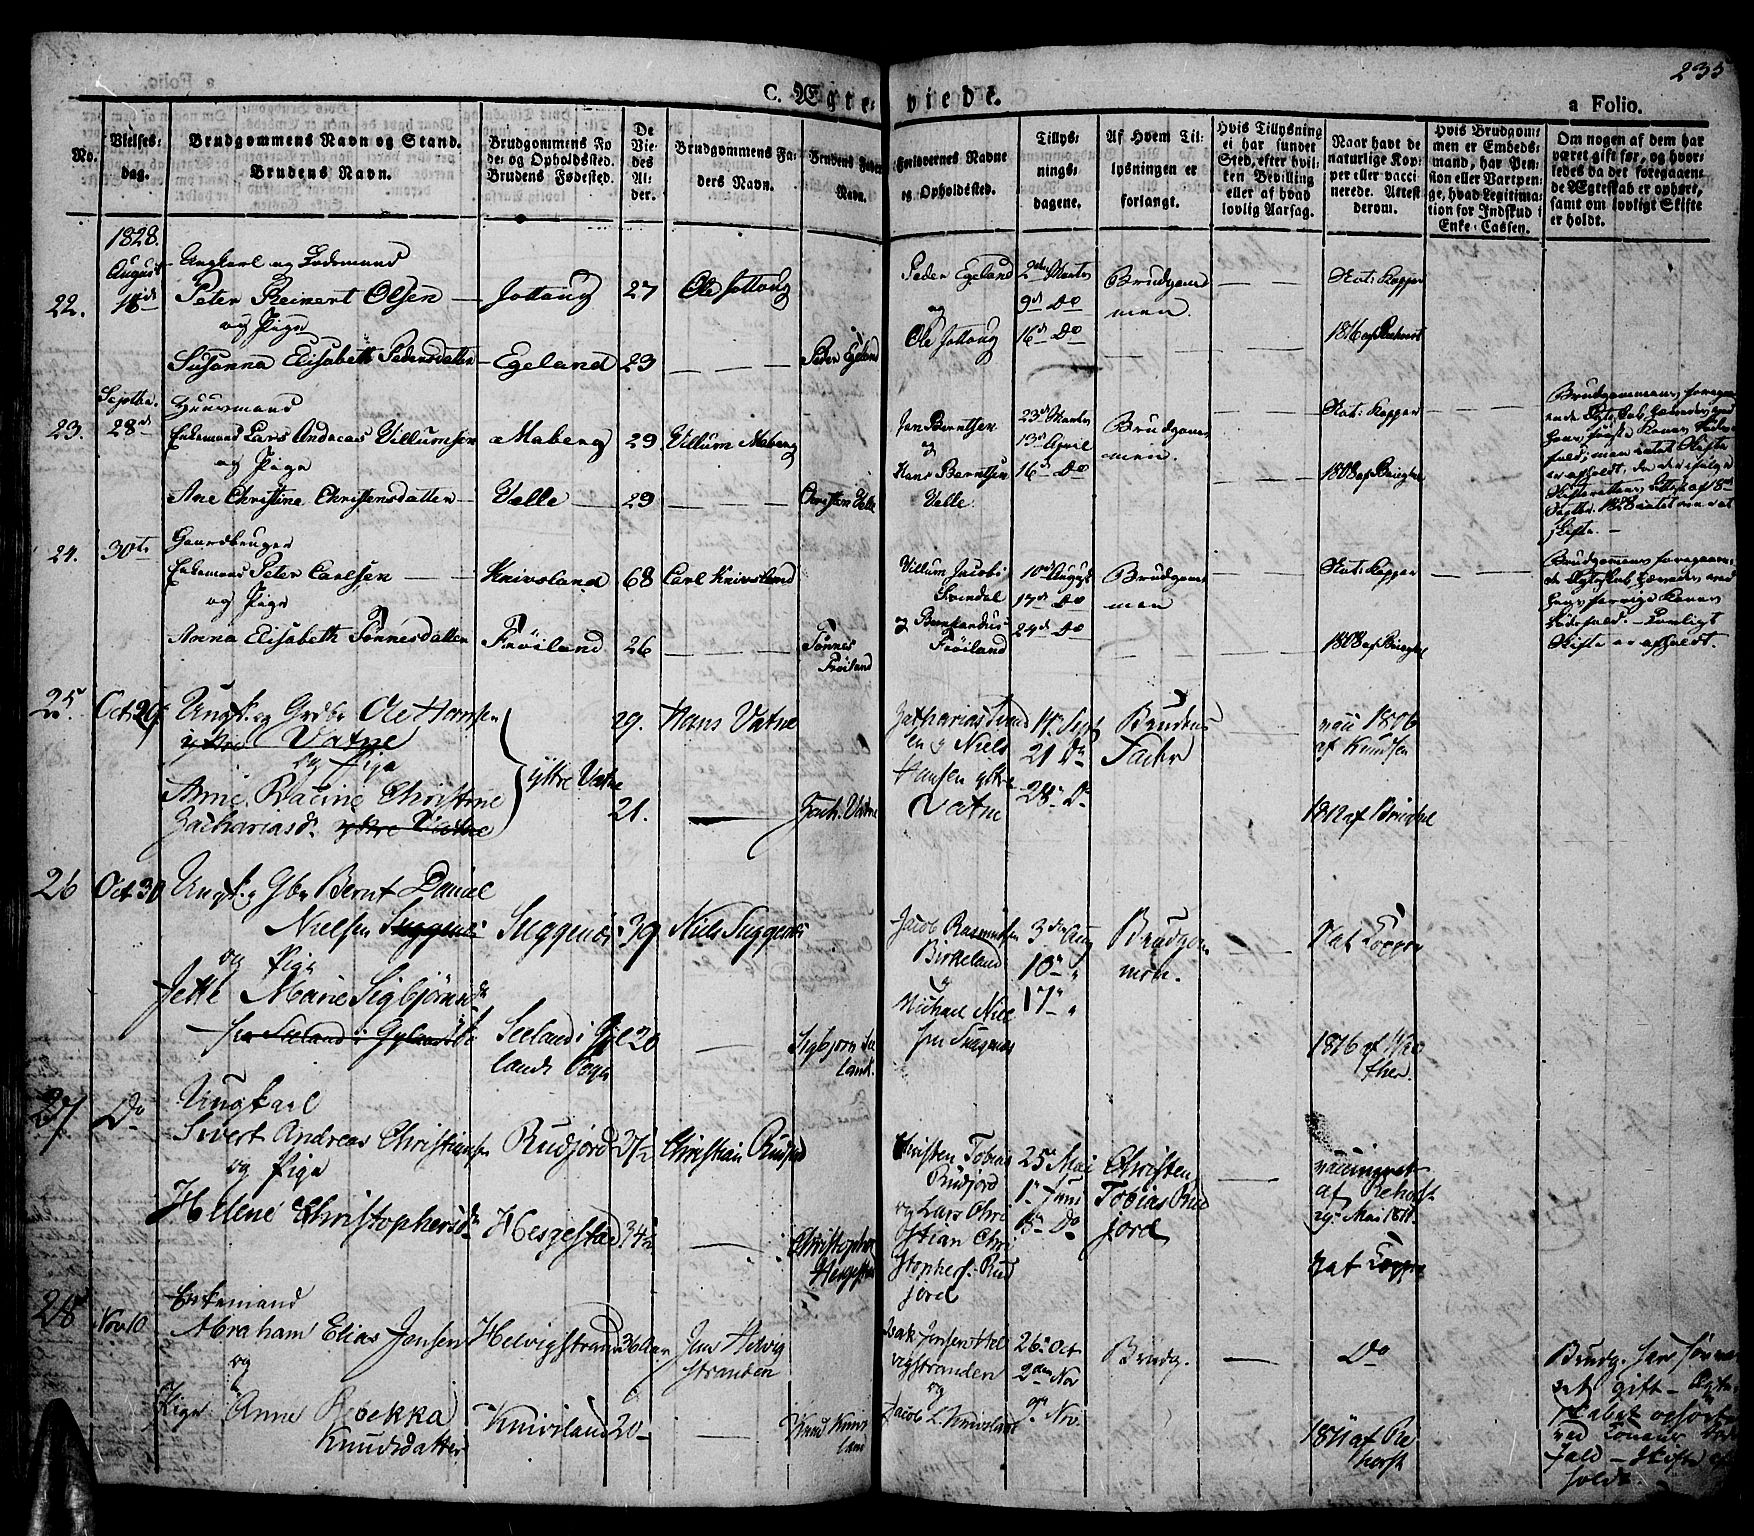 235
C. Ægte-viede.
a Folio.
No.
Vielses-
dag.
Brudgommens Navn og Stand.
Brudens Navn.
Brudgommens Fø-
de- og Opholdsted.
Brudens Fødested.
De
Vie-
des
Al-
der.
Brudgommens Fa-
ders Navn.
Brudens Faders
Navn.
Forlovernes Navne
og Opholdsted.
Tillys-
nings-
dagene.
Af Hvem Til-
lysningen er
forlangt.
Hvis Tillysning
ei har fundet
Sted, efter hvil-
ken Bevilling
eller af hvad
lovlig Aarsag.
Naar havt de
naturlige Kop-
per eller vacci-
nerede. Attest
derom.
Hvis Brudgom-
men er Embeds-
mand, har Pen-
sion eller Vartpen-
ge, hvad Legitima-
tion for Indskud i
Enke-Cassen.
Om nogen af dem har
været gift før, og hvor-
ledes da det foregaaen-
de Ægteskab er ophørt,
samt om lovligt Skifte
er holdt.
1828.
August
22.
Ungkarl og
Peter Reinert Olsen
og Pige
Susanna Elisabeth Pedersdatter
Jottoug
Egeland
27
23
Ole Jottoug
Peder Egeland
Peder Egeland
og
Ole Jottoug
2den Marts
9de Do
16de Do
Brudgom
men.
Nat: Kopper
1816 af
Septbr.
23. 28de
Huusmand
Enkemand Lars Andreas Villumsen
og Pige
Ane Christine Christensdatter
Maberg
Velle
29
29
Villum Maberg
Christen Velle
Jan Berntsen
og
Hans Berntsen
Velle
23de Marts
13de April
16de Do
Brudgom
men.
Nat: Kopper
1808 af
Brudgommens forega-
ende Ægteskab
24. 30te
Gaardbruger
Enkemand Peter Carlsen
og Pige
Anna Elisabeth Tønnesdatter
Knivsland
Frøiland
68
26
Carl Knivsland
Tønnes
Frøiland
Villum Jacobs
og Berntandus
Frøiland
10de August
17de Do
24de Do
Brudgom
men
Nat: Kopper
1808 af
Brudgommens foregaaen-
de Ægteskab
Skifte er afholdt.
25. Oct 30
Ungk. og Grdbr Ole Hansen
ytre Vatne
og Pige
Anne Bacine Christine
Zachariasd. ytre Vatne
ytre Vatne
29.
21.
Hans Vatne
Zach. Vatne
Zacharias
og Niels
Hansen ytre
Vatne
14 Sept
21 Do
28 Do
Brudens
Fader
vacc 1816
af Knudsen
1812 af
26 Oct 30
Ungk. og Gbr Bernt Daniel
Nielsen Suggenes
og Pige
Jette Marie Sigbjørnsd
fra Seeland i Gyland
Suggenes
Seeland i Gy
lands Sogn
39
20
Niels Suggenes
Sigbjørn See
land.
Jacob Rasmussen
Birkeland
og
Michael Niel
sen Suggenes
3die Aug
10 "
17 "
Brudgom
men.
Nat Kopper
1816 af
27 Do
Ungkarl
Sivert Andreas Christians
og Pige
Helene Christophersd
Rudjord
Hesgestad
27½
34½
Christian Rudjord
Christopher
Hesgestad
Christen Tobias
Rudjord
og Lars Chri
stian Chri
stophers. Rud
jord
25de Mai
1 Juni
Do
Christen
Tobias Rud
jord
vaccineret
af Rehorst
29 Mai 1811.
nat Kopper
28 Nov 10
Enkemand
Abraham Elias Jensen
og
Pige Anne Rebekka
Knudsdatter
Helvigstrand
Knivsland
36 Aar
20
Jens Helvig
stranden
Knud Knivs
land
Isak Jensen Hel
vigstranden
og
Jacob L. Knivsland
26 Oct
2den Nov
9 Nov.
Brudg.
Do
1811 af Re
horst
Brudg. har før væ-
ret gift – Ægte-
skabet ophørt
ved Konens Døds
fald – Skifte er
holdt.